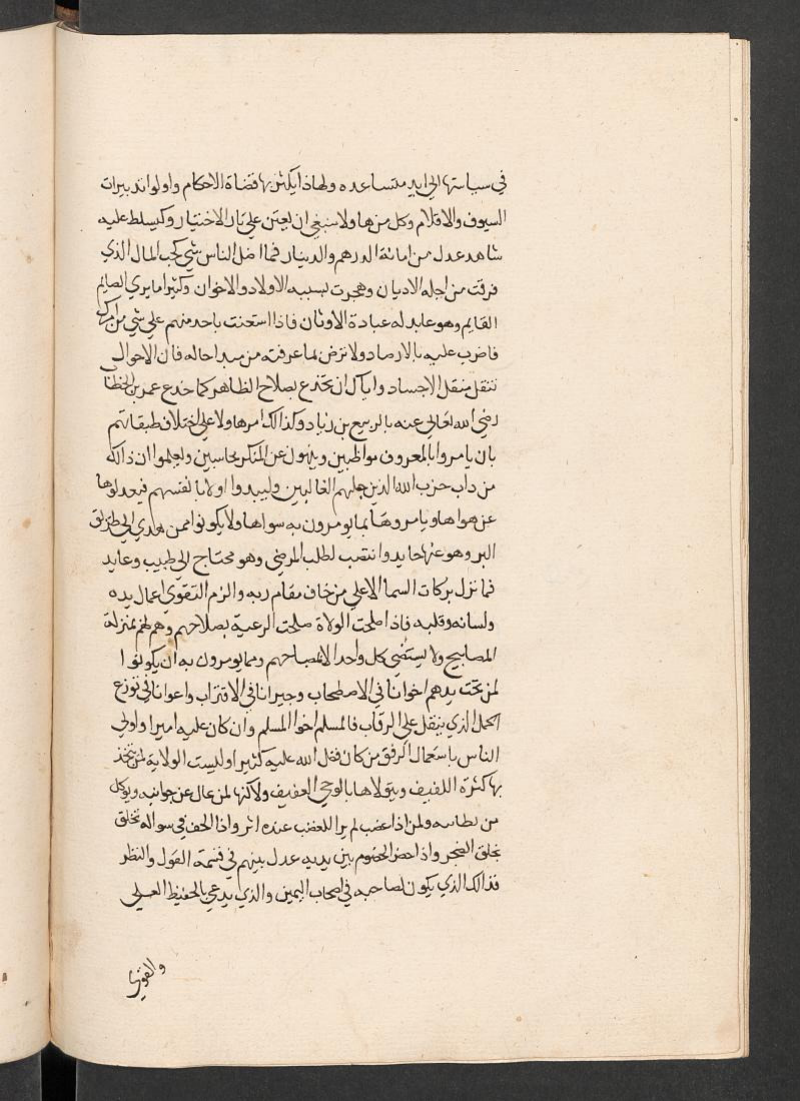 في سياستها الى ايد متساعده ولهاذا يكثر بها قضاة الاحكام واولوا تدبيرات
السيوف والاقلام وكل من هاولا ينبغي ان يعتن على نار الاختيار وكيسلط عليه
شاهد عدل من امانة الدرهم والدينار فما اضل الناس شي كحب المال الذي
فرقت من اجله الاديان وهجرت بسببه الاولاد والاخوان وكثيرا ما يرى الصايم
القايم وهو عابد له عبادة الاوثان فاذا استعنت باحد منهم على شي من امرك
فاضرب عليه بالارصاد ولا ترض بما عرفته من مبدا حاله فان الاحوال
تنتقل منقل الاجساد واياك ان تخدع بصلاح الظاهر كما خدع عمر بن الخطاب
رضي الله تعالى عنه بالربيع بن زياد وكذالك امر هاولا على اختلاف طبقاتهم
بان يامروا بالمعروف مواظبين وينهون عن المنكر محاسبين وليعلموا ان ذالك
من داب حزب الله الذين جعلهم الغالبين وليبدوا اولا بانفسهم فيعدلوها
عن هواها ويامروها بما يومرون به سواها ولا يكونوا ممن هدي الى طريق
البر وهو عنها حايد وانتصب لطلب المرضى وهو محتاج الى طبيب وعايد
فما تنزل بركات السما الا على من خاف مقام ربه والزم التقوى اعمال يده
ولسانه وقلبه فاذا صلحت الولاة صلحت الرعية بصلاحهم وهم لهم بمنزلة
المصابيح ولا يستضي كل واحد الا بمصباحهم ومما يومرون به ان يكونوا
لمن تحت يدهم اخوانا في الاصطحاب وجيرانا في الاقتراب واعوانا في توزع
الحمل الذي يثقل على الرقاب فالمسلم اخوا المسلم وان كان عليه اميرا واولى
الناس باستعمال الرفق من كان فضل الله عليه كثيرا وليست الولاية لمن يتخذ
بها كثرة اللفيف ويتولاها بالوجي العفيف ولاكنها لمن مال عن جوانبه ويوكل
من بطانه ولمن اذا غضب لم ير للغضب عنده اثر واذا الحف في سواله تخلق
بخلق الضجر واذا حضر الخصوم بين يديه عدل بينهم في قسمة القول والنظر
فذالك الذي يكون لصاحبه في اصحاب اليمين والذي يدعى بالحفيظ العلي
والقوي